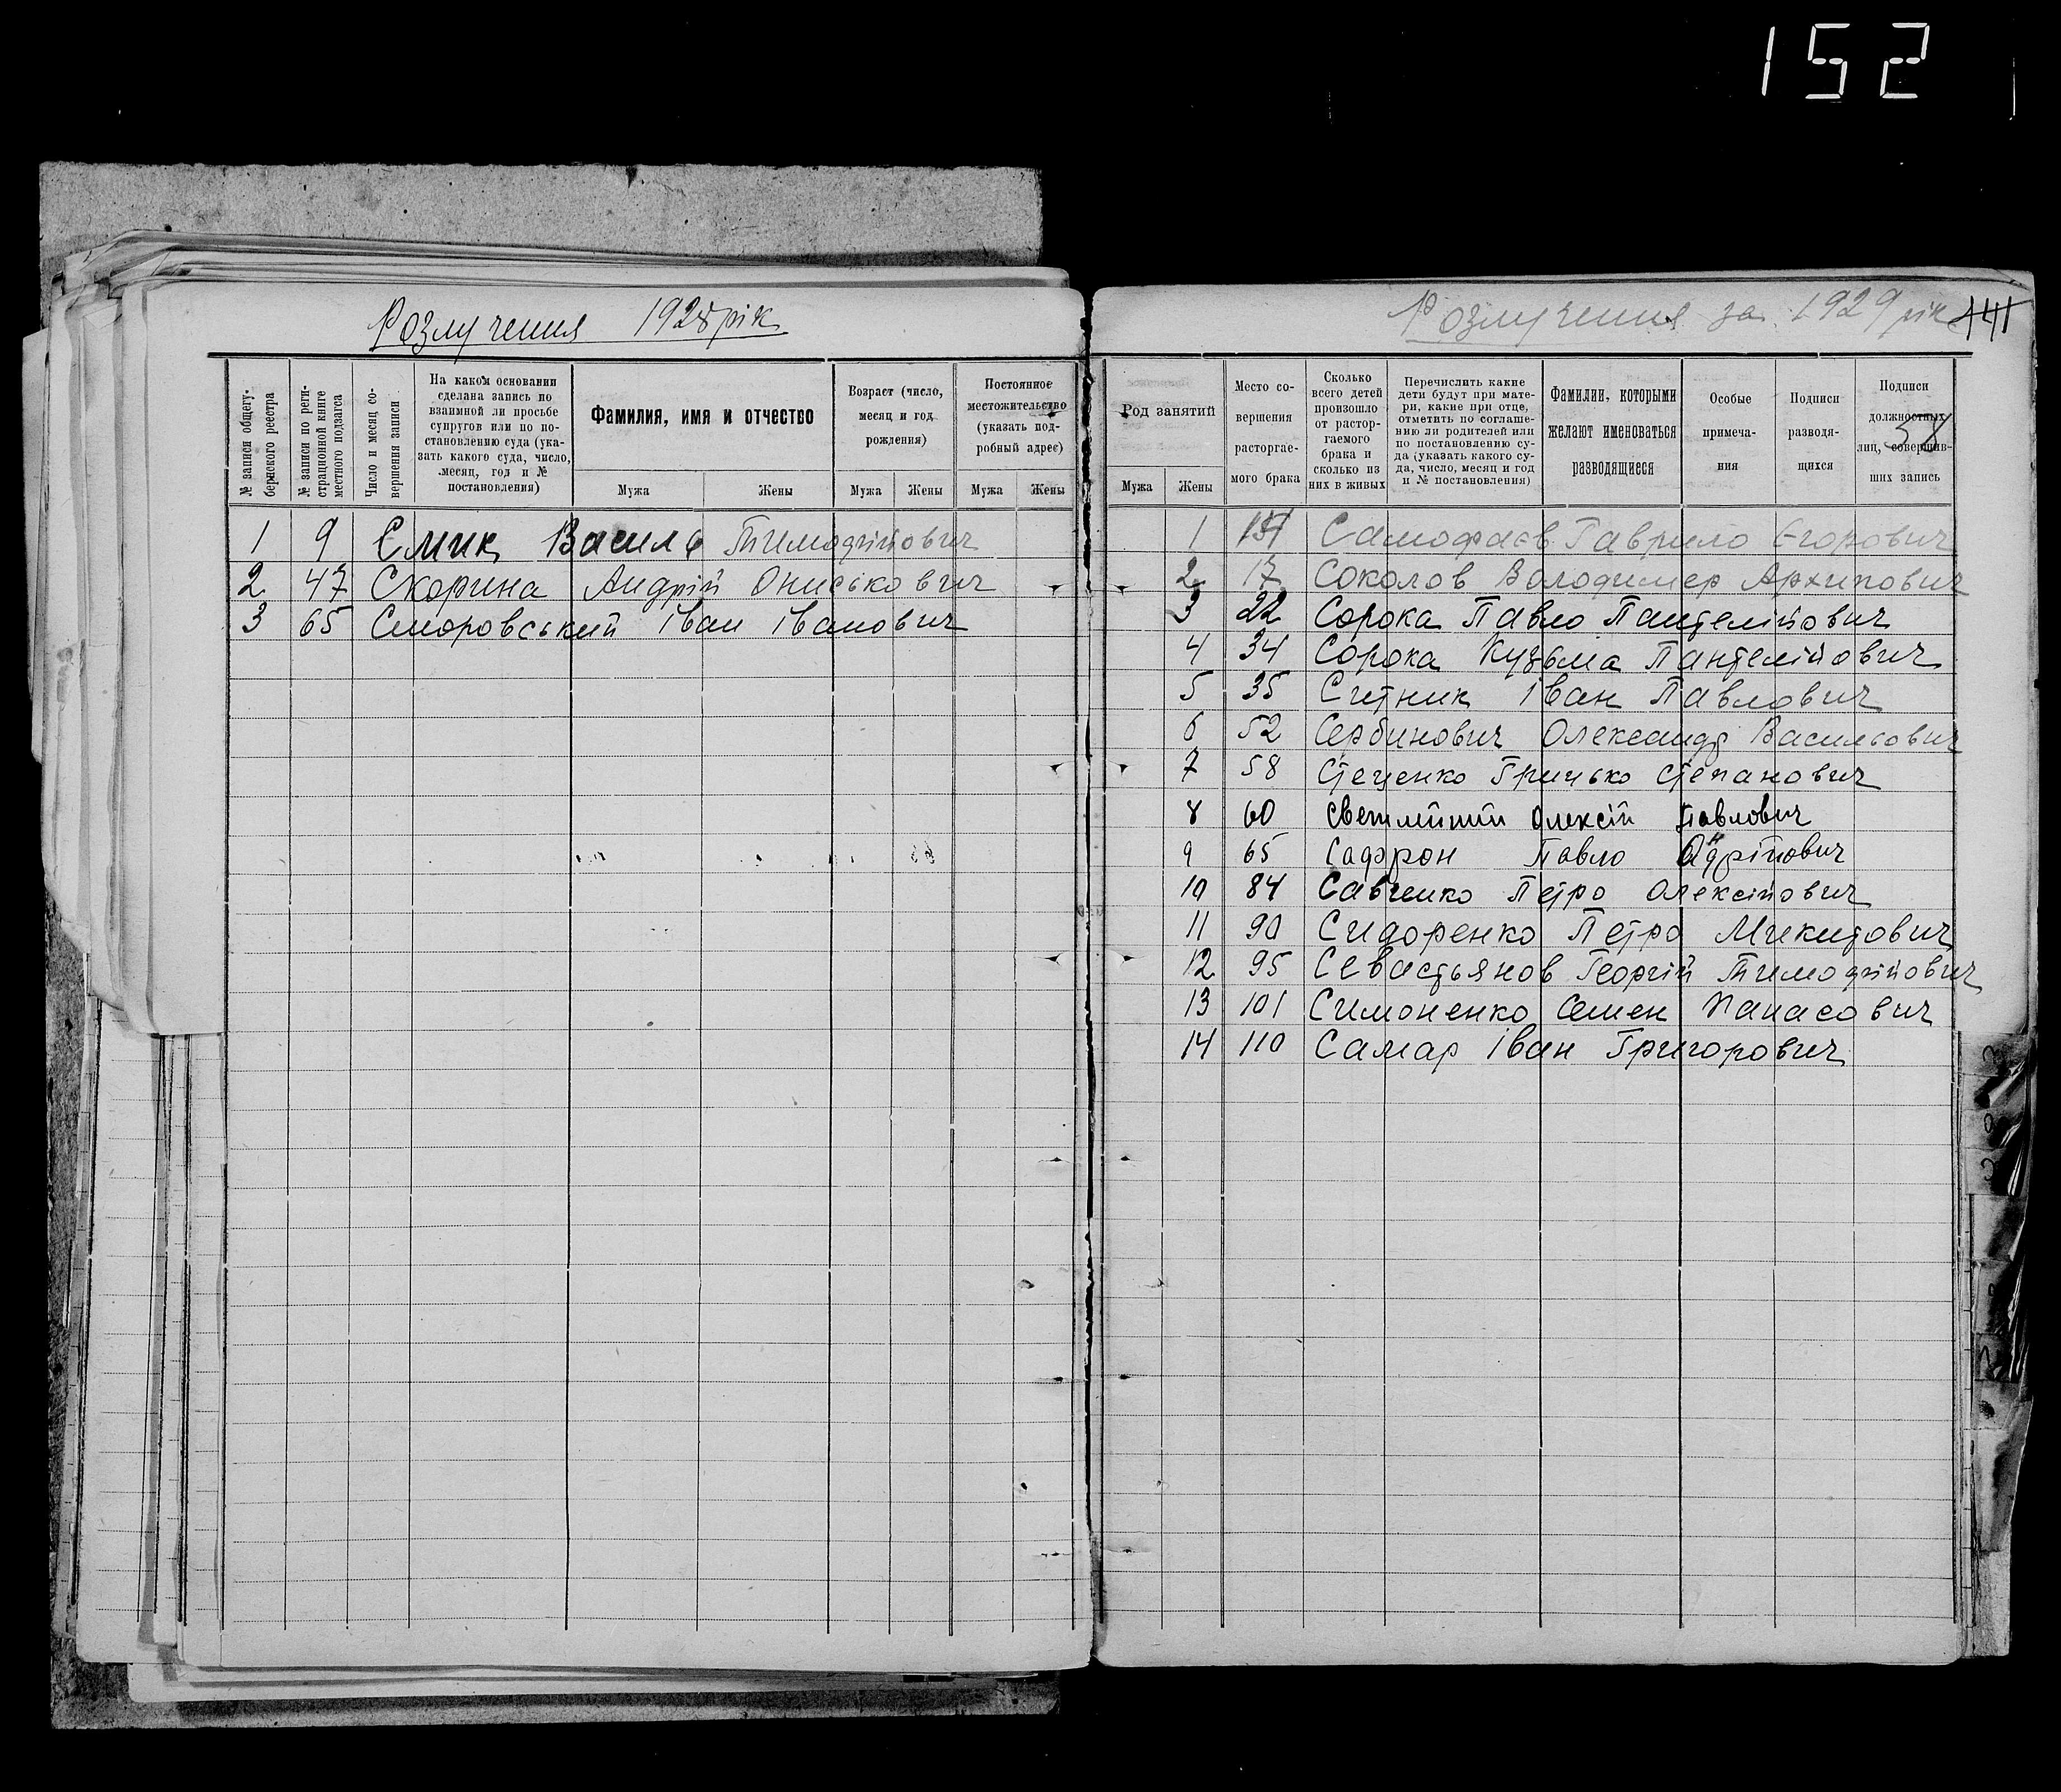 152
Розлучення 1928 рік
№ записи общегу-
бернского реестра
№ записи по реги-
страционной книге
местного подзагса
Число и месяц со-
вершения записи
На каком основании
сделана запись по
взаимной ли просьбе
супругов или по по-
становлению суда (ука-
зать какого суда, число,
месяц, год и №
постановления)
Фамилия, имя и отчество
Мужа Жены
Возраст (число,
месяц и год
рождения)
Мужа Жены
Постоянное
местожительство
(указать под-
робный адрес)
Мужа Жены
1 9 Смик Василь Тимофійович
2 47 Скорина Андрій Ониськович
3 65 Сморовський Іван Іванович
Розлучення за 1929 рік 141
Род занятий
Мужа Жены
Место со-
вершения
расторгае-
мого брака
Сколько
всего детей
произошло
от растор-
гаемого
брака и
сколько из
них в живых
Перечислить какие
дети будут при мате-
ри, какие при отце,
отметить по соглаше-
нию ли родителей или
по постановлению су-
да (указать какого су-
да, число, месяц и год
и № постановления)
Фамилии, которыми
желают именоваться
разводящиеся
Особые
примеча-
ния
Подписи
разводя-
щихся
Подписи
должностных
лиц, совершив-
ших запись
1 Самофаєв Гаврило Єгорович
2 17 Соколов Володимер Архипович
3 22 Сорока Павло Пантелійович
4 34 Сорока Кузьма Пантелійович
5 35 Ситник Іван Павлович
6 52 Сербинович Олександр Васильович
7 58 Стеценко Грицько Степанович
8 60 Олексій Павлович
9 65 Сафрон Павло
10 84 Савченко Петро Олексійович
11 90 Сидоренко Петро Микитович
12 95 Севастьянов Георгій Тимофійович
13 101 Симоненко Семен Панасович
14 110 Самар Іван Григорович